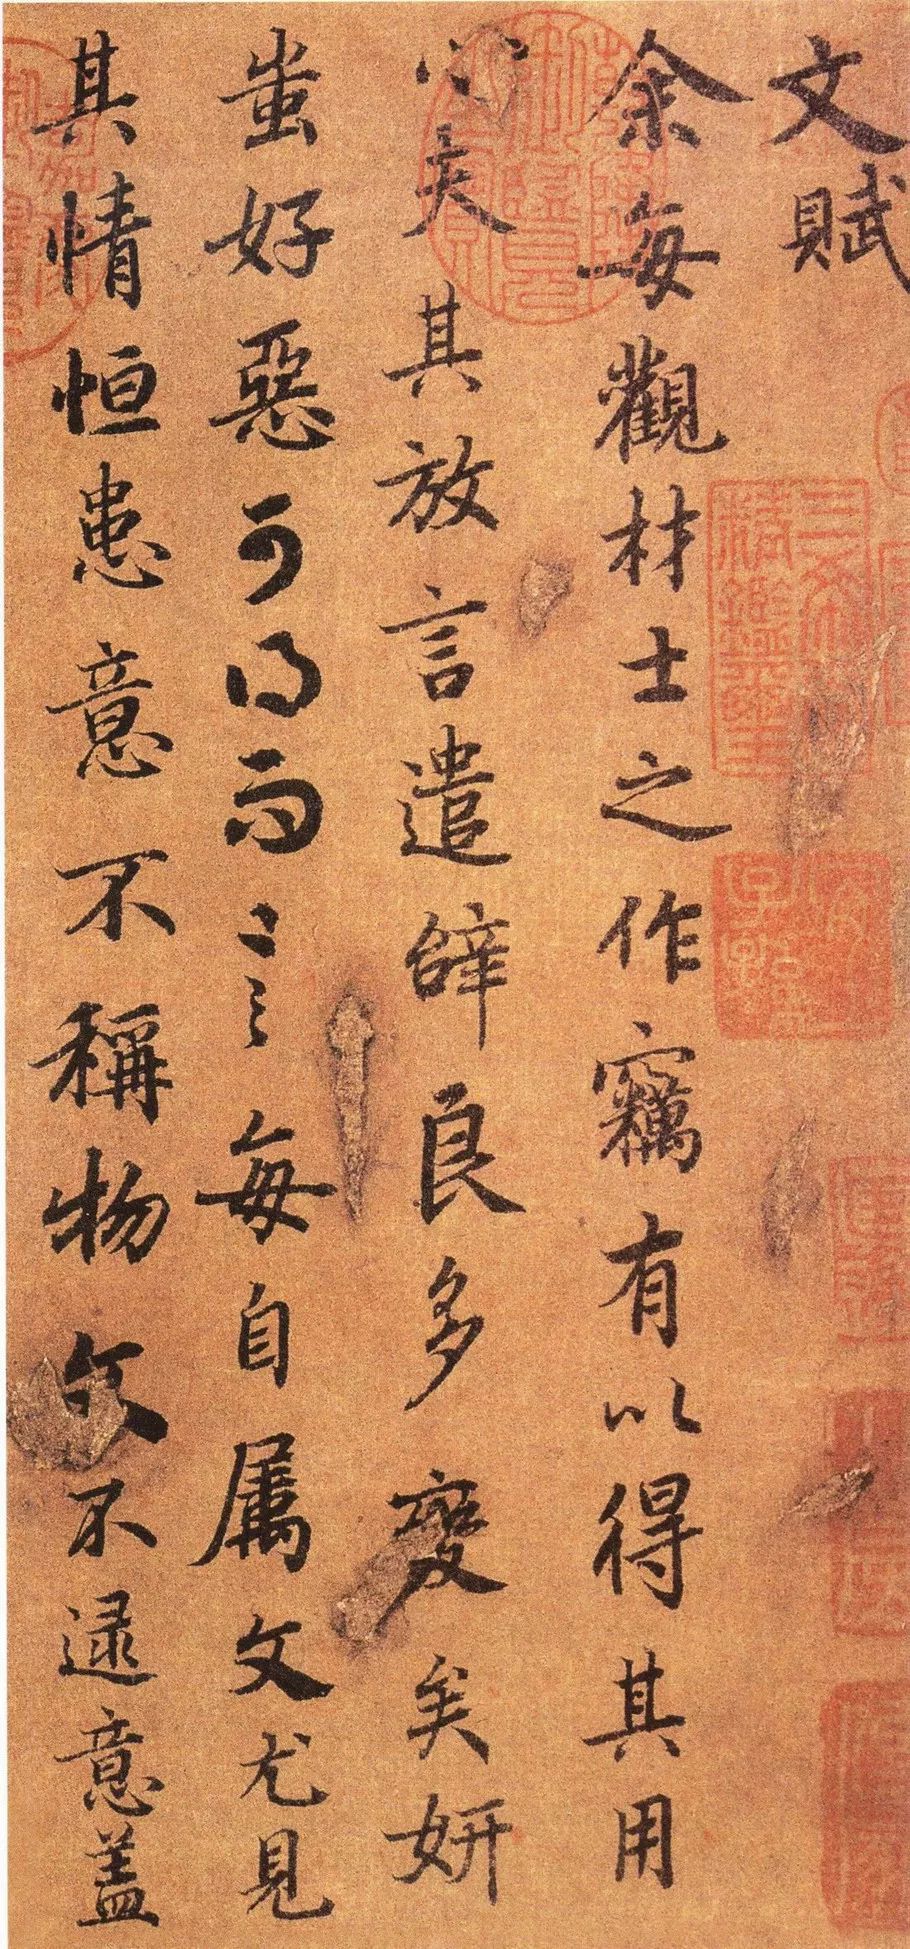 文賦
余每觀材士之作竊有以得其用
心夫其放言遣辭良多變矣妍
蚩好惡可得而言每自属文尤見
其情恒患意不稱物文不逮意蓋
三希堂精鑑璽
宜子孫